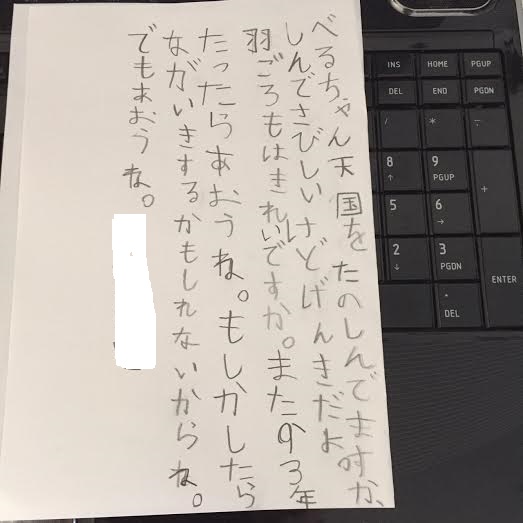 べるちゃん天国をたのしんでますか、
しんでさびしいけどげんきだよ
羽ごろもはきれいですか。また93年
たったらあおうね。もしかしたら
ながいきするかもしれないからね。
でもあおうね。
INS HOME PGUP
DEL END PGDN
/ * -
8 ↑ 9 PGUP +
5 6 →
2 ↓ 3 PGDN ENTER
. DEL